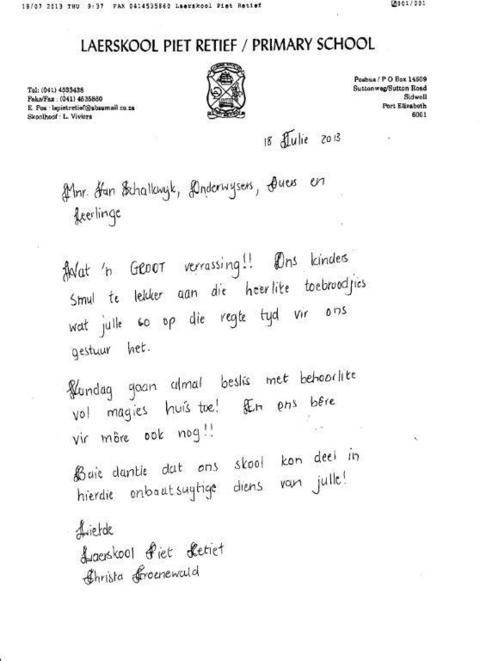 18/07 2013 THU 9:37 FAX 0414535860 Laerskool Piet Retief 001/001
LAERSKOOL PIET RETIEF / PRIMARY SCHOOL
Tel: (041) 4533438
Faks/Fax: (041) 4535860
E. Pos : lapietretief@absamail.co.za
Skoolhoof : L. Viviers
Posbus / P O Box 14509
Suttonweg/Sutton Road
Sidwell
Port Elizabeth
6061
18 Julie 2013
Mnr. Van Schalkwyk, Onderwysers, Ouers en
Leerlinge
Wat 'n GROOT verrassing!! Ons kinders
smul te lekker aan die heerlike toebroodjies
wat julle so op die regte tyd vir ons
gestuur het.
Vandag gaan almal beslis met behoorlike
vol magies huis toe! En ons bêre
vir môre ook nog!!
Baie dankie dat ons skool kon deel in
hierdie onbaatsugtige diens van julle!
Liefde
Laerskool Piet Retief
Christa Groenewald